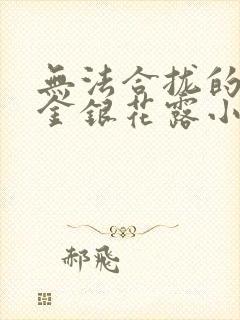 無法合拢的
金銀花露小
郝飛